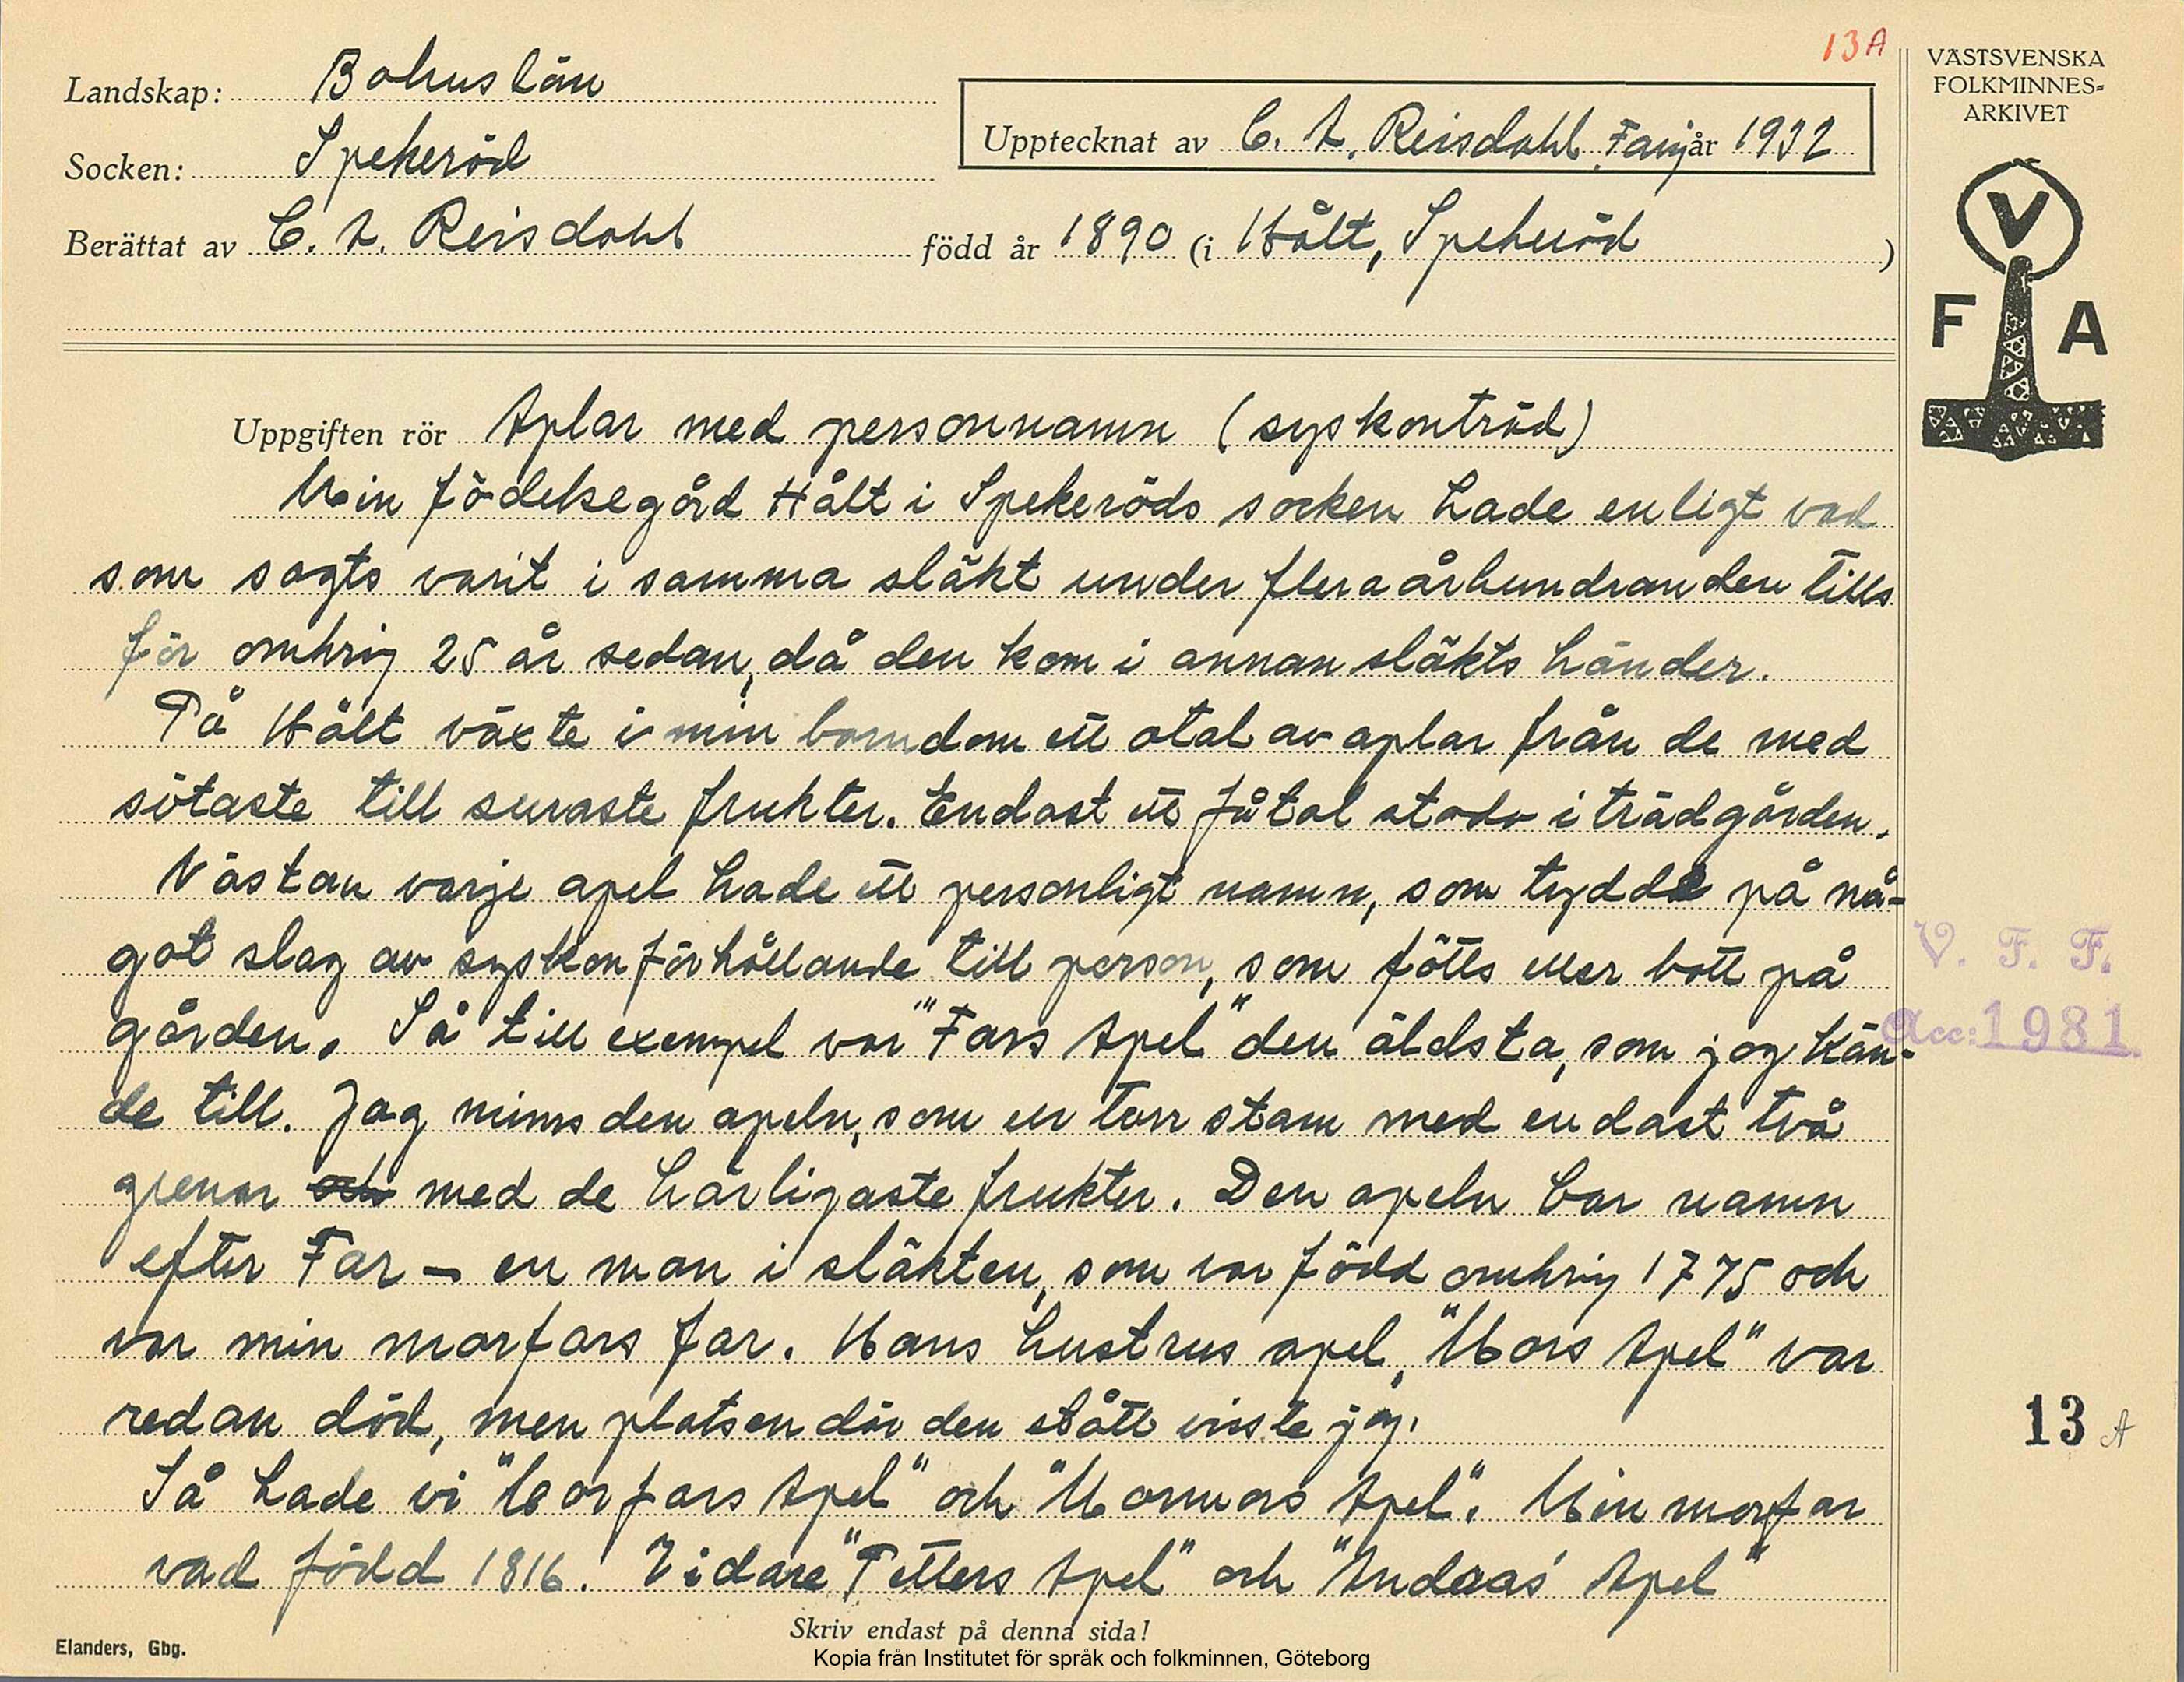 13A
Landskap: Bohuslän
Socken: Spekeröd
Upptecknat av C. A. Reisdahl, Familj år 1932
Berättat av C. A. Reisdahl född år 1890 (i Hålt, Spekeröd )
VÄSTSVENSKA
FOLKMINNES-
ARKIVET
V
F A
Uppgiften rör Aplar med personnamn (syskonträd)
Min födelsegård Hålt i Spekeröds socken hade enligt vad
som sagts varit i samma släkt under flera århundranden tills
för omkring 25 år sedan, då den kom i annan släkts händer.
På Hålt växte i min barndom ett otal av aplar från de med
sötaste till suraste frukter. Endast ett fåtal stodo i trädgården.
Nästan varje apel hade ett personligt namn, som tydde på nå-
got slag av syskonförhållande till person, som fötts eller bott på
gården. Så till exempel var "Fars Apel" den äldsta, som jag kän-
de till. Jag minns den apeln, som en torr stam med endast två
grenar och med de härligaste frukter. Den apeln bar namn
efter Far – en man i släkten, som var född omkring 1775 och
var min morfars far. Hans hustrus apel, "Mors Apel" var
redan död, men platsen där den stått visste jag.
Så hade vi "Morfars Apel" och "Mormors Apel". Min morfar
vad född 1816. Vidare "Petters Apel" och "Andreas' Apel"
V. F. F.
Acc: 1981
13 A
Skriv endast på denna sida!
Elanders, Gbg.
Kopia från Institutet för språk och folkminnen, Göteborg